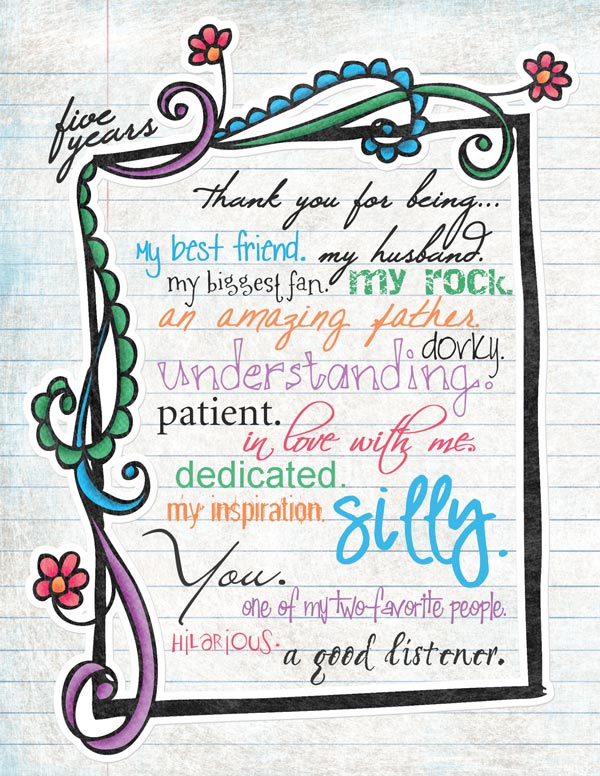 five
years
Thank you for being...
My best friend. my husband.
my biggest fan. my rock.
an amazing father.
dorky.
understanding.
patient.
in love with me.
dedicated.
my inspiration. silly.
You.
one of my two favorite people.
HiLARiOUS.
a good listener.